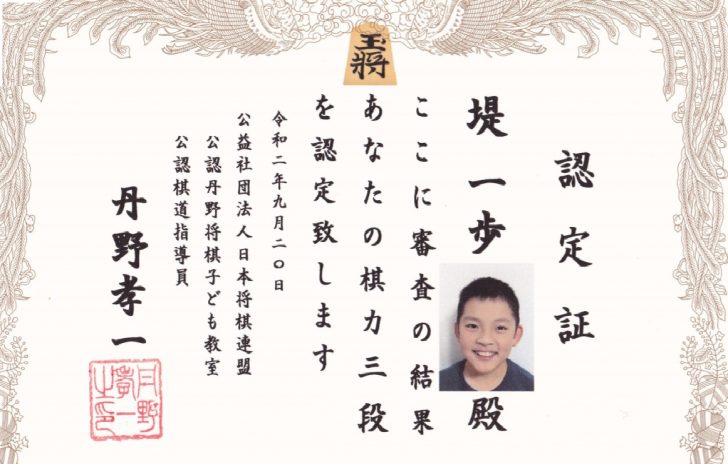 玉将
認定証
堤一歩殿
ここに審査の結果
あなたの棋力三段
を認定致します
令和二年九月二〇日
公益社団法人日本将棋連盟
公認丹野将棋子ども教室
公認棋道指導員
丹野孝一
丹野
孝一
之印